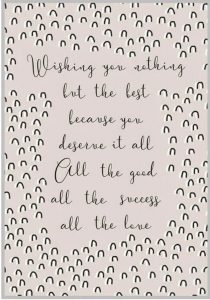 Wishing you nothing
but the best
because you
deserve it all
All the good
all the success
all the love